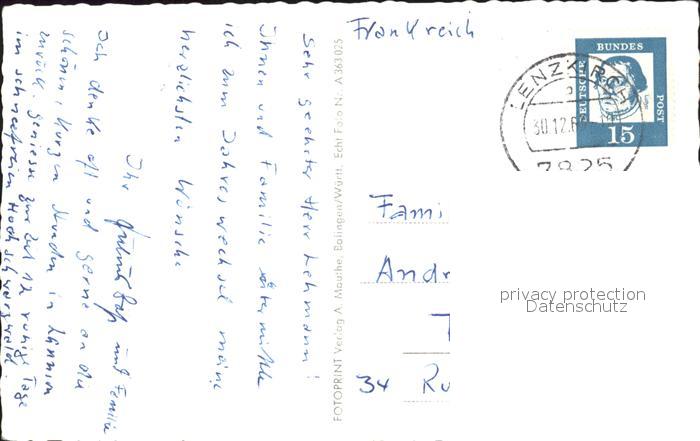 Frankreich
DEUTSCHE
BUNDES
POST
15
LENZKIRCH
30.12.6
7825
Sehr geehrter Herr Lehmann!
Ihnen und Familie übermittle
ich zum Jahreswechsel meine
herzlichsten Wünsche
Ihr und Familie
Ich denke oft und gerne an die
schönen, kurzen Stunden in Lannion
zurück. Geniesse zur Zeit 12 ruhige Tage
im schneefreien Hochschwarzwald.
FOTOPRINT Verlag A. Mauthe, Balingen/Württ. Echt Foto Nr. A 363025
Fami
Andr
34 Ru
privacy protection
Datenschutz